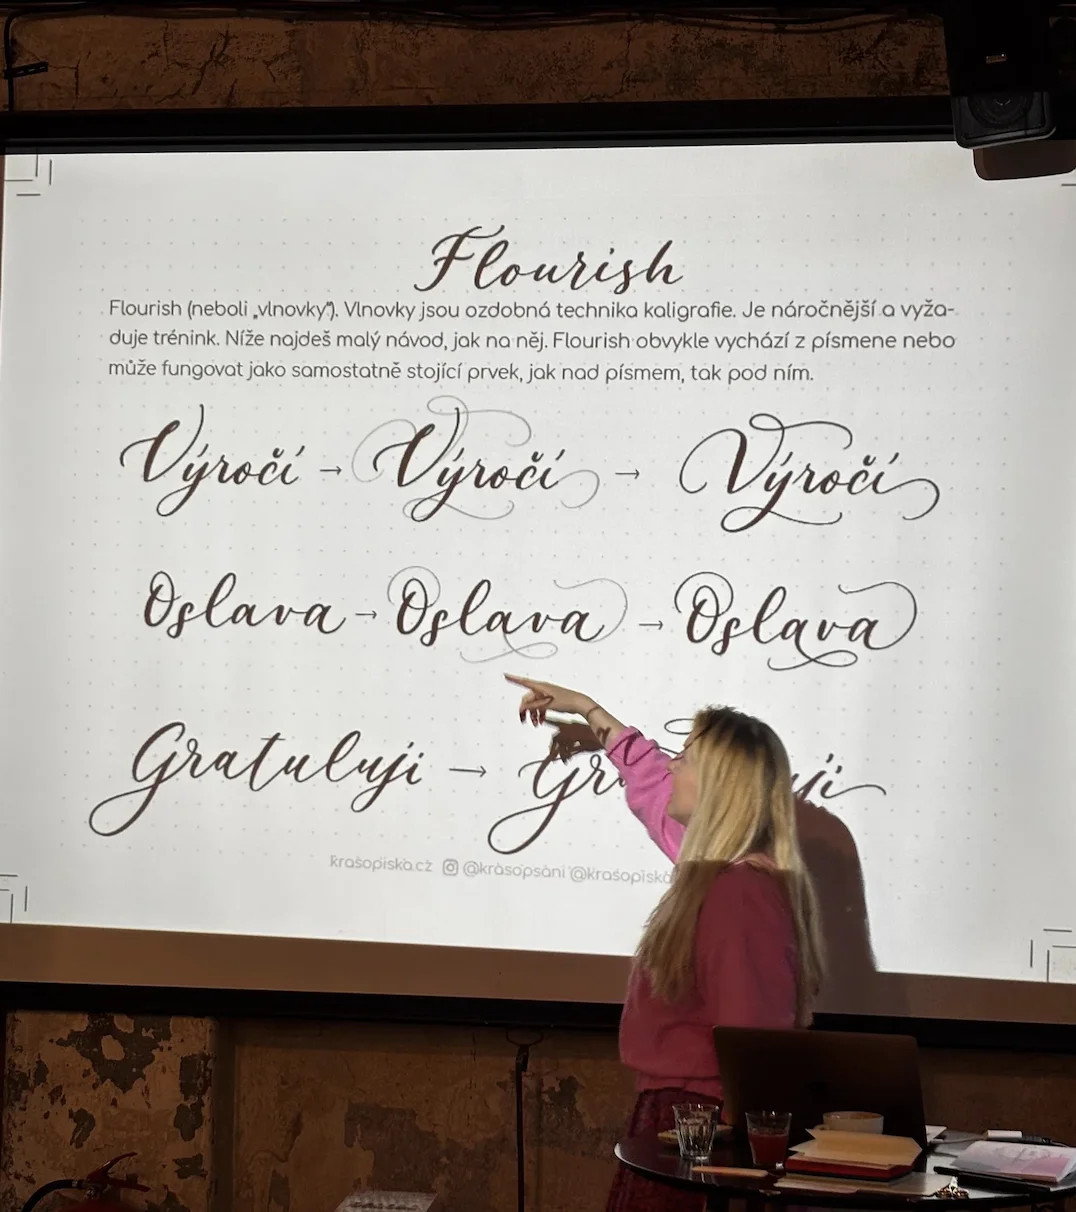 Flourish
Flourish (neboli „vlnovky“). Vlnovky jsou ozdobná technika kaligrafie. Je náročnější a vyža-
duje trénink. Níže najdeš malý návod, jak na něj. Flourish obvykle vychází z písmene nebo
může fungovat jako samostatně stojící prvek, jak nad písmem, tak pod ním.
Výročí → Výročí → Výročí
Oslava → Oslava → Oslava
Gratuluji →
krasopiska.cz @krasopsani @krasopiska